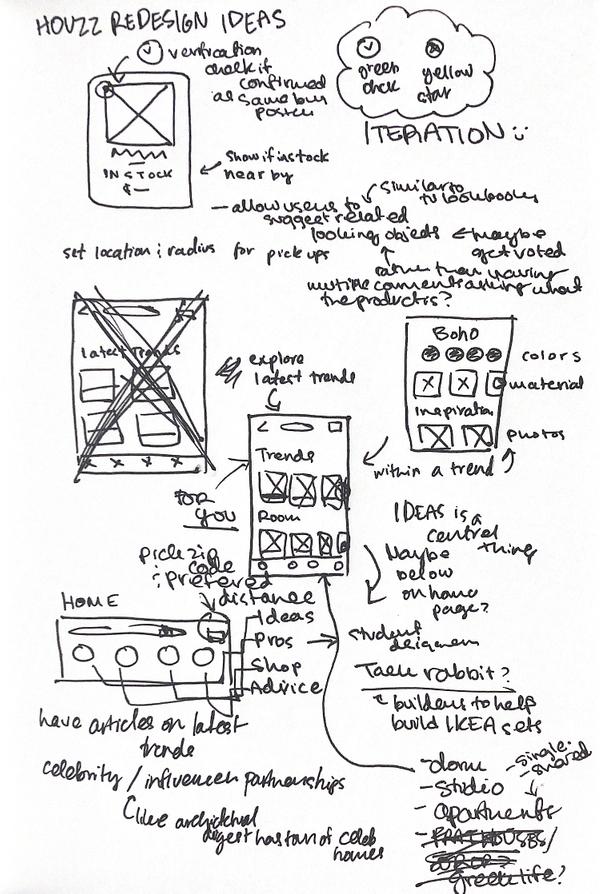 HOUZZ REDESIGN IDEAS
verification
check if
confirmed
as same by
poster
green
check
yellow
star
ITERATION :
IN STOCK
$ —
Show if in stock
near by
— allow users to
suggest related
looking objects
similar to
lookbooks
maybe
get voted
rather than having
multiple comments asking what
the product is?
set location & radius for pick ups
Latest Trends
explore
latest trends
Boho
colors
material
Inspiration
photos
within a trend
Trends
Room
FOR
YOU
pick zip
code
& preferred
distance
IDEAS is a
central
thing
Maybe
below
on home
page?
HOME
Ideas
Pros
Shop
Advice
student
designers
Task rabbit?
builders to help
build IKEA sets
have articles on latest
trends
celebrity / influencer partnerships
like architectural
digest has tour of celeb
homes
- dorm
- studio
- apartments
- single
- shared
- FRAT HOUSES/
greek life?